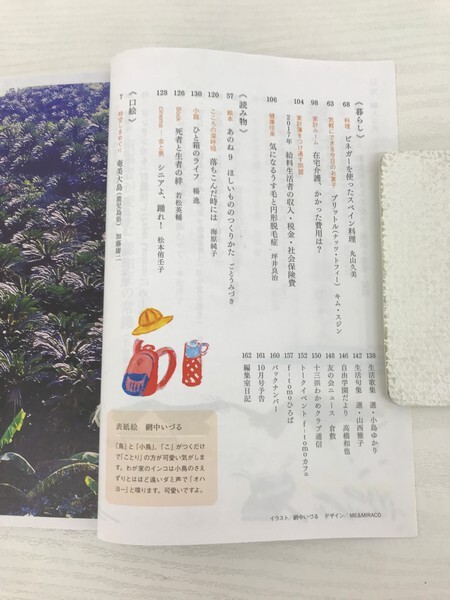 《暮らし》
68 料理 ビネガーを使ったスペイン料理 丸山久美
63 気軽にできる今日のお菓子 ブリットル(ナッツ・トフィー) キム・スジン
98 家計ルーム 在宅介護、かかった費用は?
104 家計簿をつけ通す同盟 2017年 給料生活者の収入・税金・社会保険費
106 健康往来 気になるうす毛と円形脱毛症 坪井良治
《読み物》
57 絵本 あのね9 ほしいもののつくりかた ごとうみづき
120 こころの深呼吸 落ちこんだ時には 海原純子
130 小説 ひと箱のライフ 楊逸
126 Book 死者と生者の絆 若松英輔
128 Cinema 金と美 シニアよ、踊れ! 松本侑壬子
《口絵》
7 奄美大島(鹿児島県) 加藤庸二
138 生活歌集 選・小島ゆかり
142 生活句集 選・山西雅子
146 自由学園だより 高橋和也
148 友の会ニュース 倉敷
150 十三浜わかめクラブ通信
152 トークイベント f-tomoカフェ
157 f-tomoひろば
160 バックナンバー
161 10月号予告
162 編集室日記
表紙絵 網中いづる
「鳥」と「小鳥」、「こ」がつくだけ
で「ことり」の方が可愛い気がしま
す。わが家のインコは小鳥のさえ
ずりとはほど遠いダミ声で「オハ
ヨー」と喋ります。可愛いですよ。
イラスト/網中いづる デザイン/ME&MIRACO